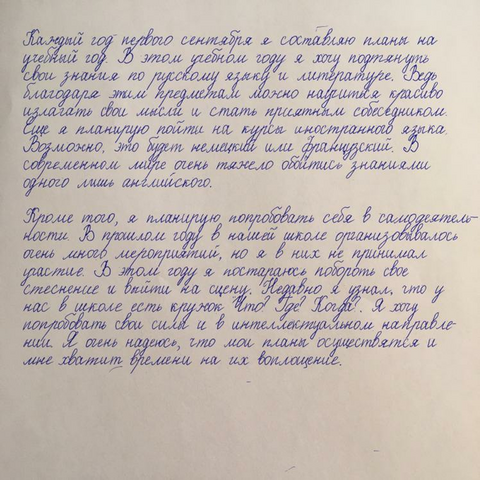 Каждый год первого сентября я составляю планы на
учебный год. В этом учебном году я хочу подтянуть
свои знания по русскому языку и литературе. Ведь
благодаря этим предметам можно научиться красиво
излагать свои мысли и стать приятным собеседником.
Еще я планирую пойти на курсы иностранного языка.
Возможно, это будет немецкий или французский. В
современном мире очень тяжело обойтись знаниями
одного лишь английского.
Кроме того, я планирую попробовать себя в самодеятель-
ности. В прошлом году в нашей школе организовывалось
очень много мероприятий, но я в них не принимал
участие. В этом году я постараюсь побороть свое
стеснение и выйти на сцену. Недавно я узнал, что у
нас в школе есть кружок "Что? Где? Когда?". Я хочу
попробовать свои силы и в интеллектуальном направле-
нии. Я очень надеюсь, что мои планы осуществятся и
мне хватит времени на их воплощение.